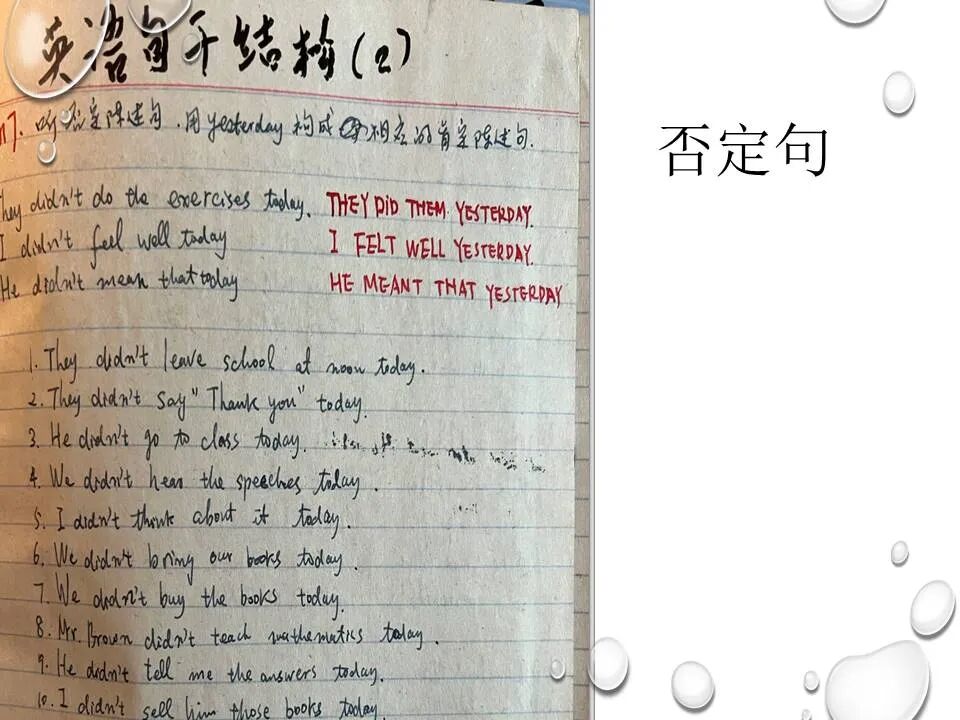 英语句子结构(2)
听否定陈述句.用yesterday构成相应的肯定陈述句.
They didn't do the exercises today. THEY DID THEM YESTERDAY.
I didn't feel well today I FELT WELL YESTERDAY.
He didn't mean that today HE MEANT THAT YESTERDAY
1. They didn't leave school at noon today.
2. They didn't say "Thank you" today.
3. He didn't go to class today.
4. We didn't hear the speeches today.
5. I didn't think about it today.
6. We didn't bring our books today.
7. We didn't buy the books today.
8. Mr. Brown didn't teach mathematics today.
9. He didn't tell me the answers today.
10. I didn't sell him those books today.
否定句